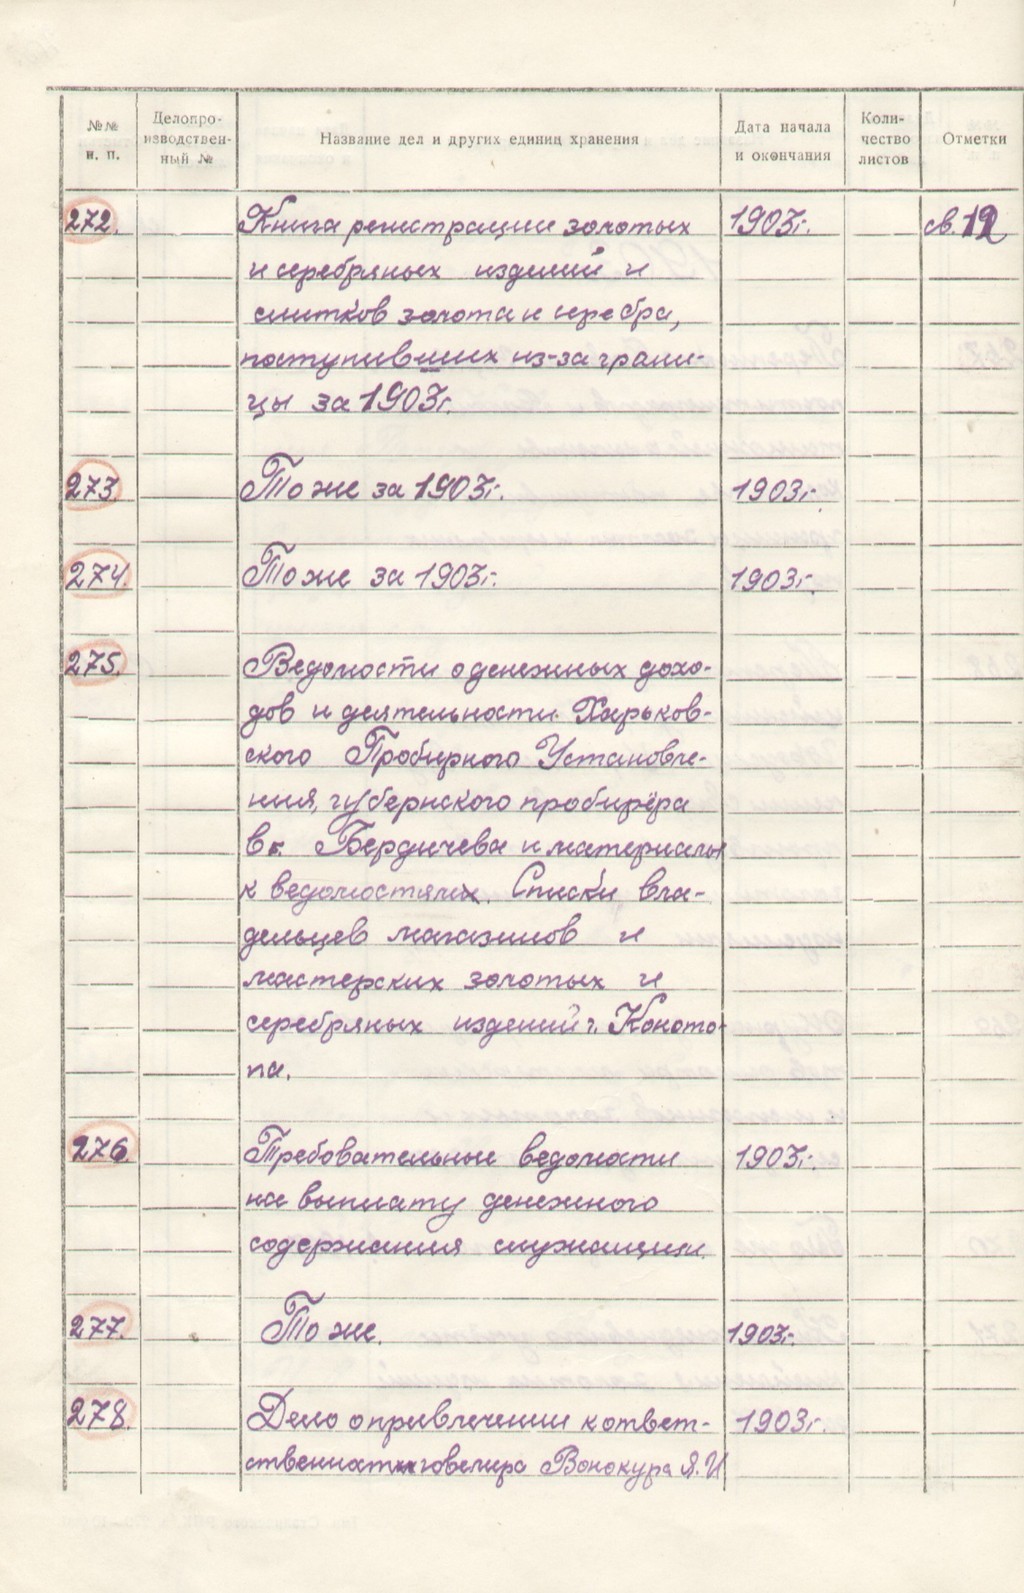 №№ и. п. Делопроизводственный № Название дел и других единиц хранения Дата начала и окончания Количество листов Отметки
272. Книга регистрации золотых 1903г. св. 12
и серебряных изделий и
слитков золота и серебра,
поступивших из-за грани-
цы за 1903г.
273. То же за 1903г. 1903г.
274. То же за 1903г. 1903г.
275. Ведомости о денежных дохо-
дов и деятельности Харьков-
ского Пробирного Установле-
ния, губернского пробирёра
в г. Бердичева и материалы
к ведомостям. Списки вла-
дельцев магазинов и
мастерских золотых и
серебряных изделий г. Коното-
па.
276. Требовательные ведомости 1903г.
на выплату денежного
содержания служащим.
277. То же. 1903г.
278. Дело о привлечении к ответ- 1903г.
ственности ювелира Вонокура Я. И